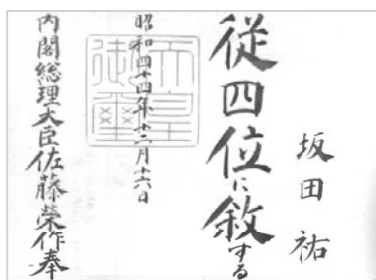 坂田祐
従四位に敘する
昭和四十四年十二月十六日
天皇御璽
内閣総理大臣佐藤榮作奉